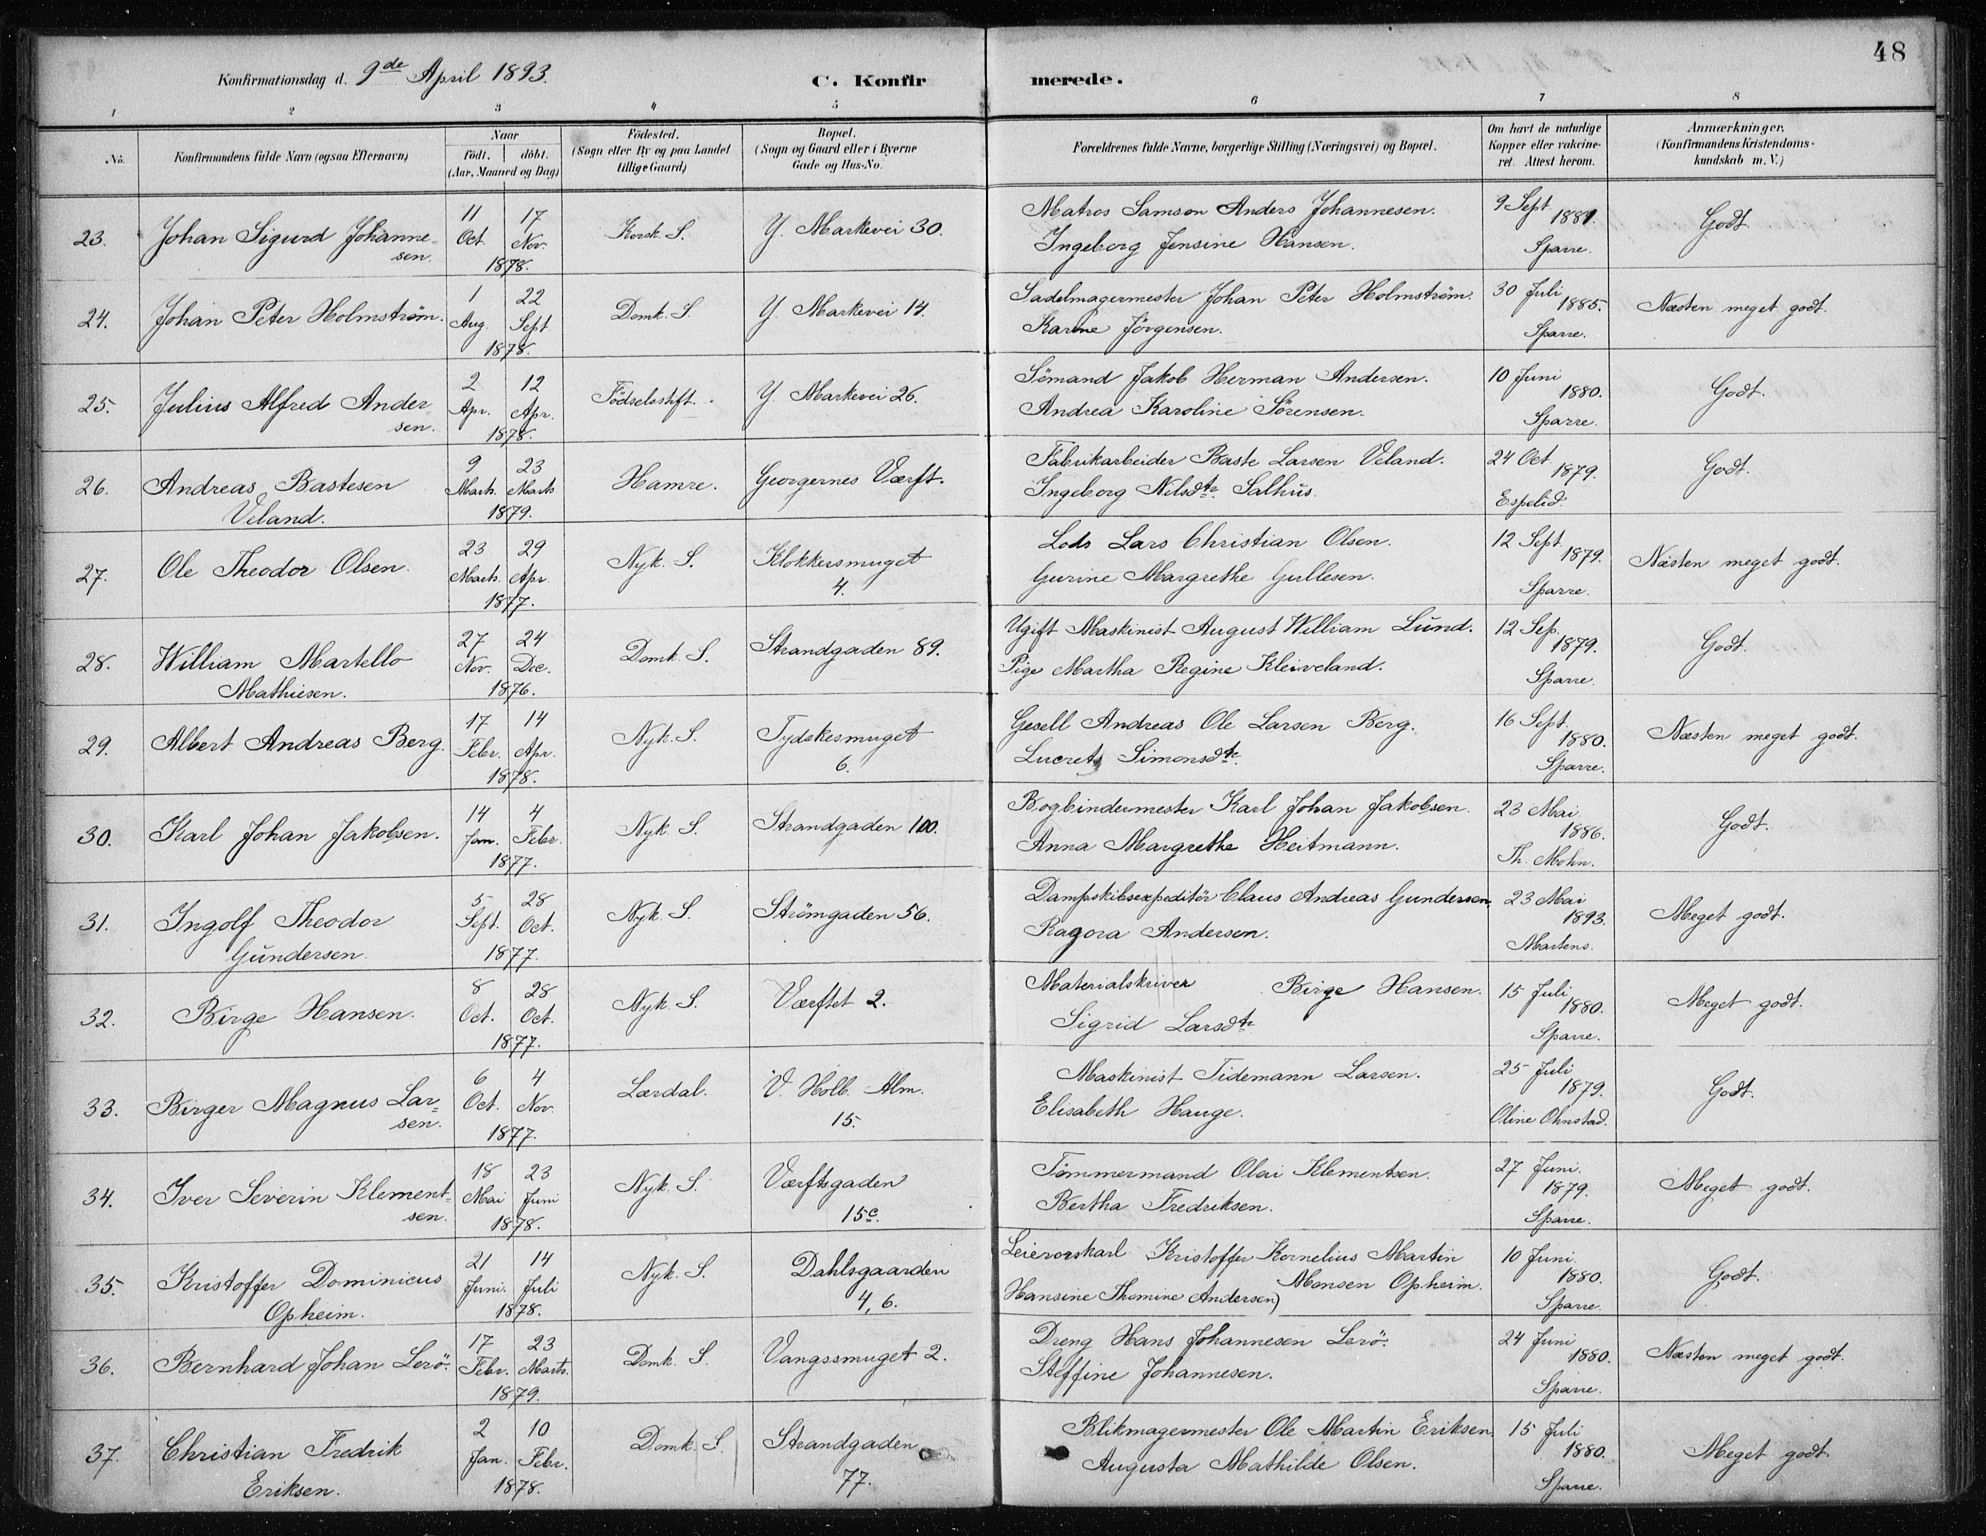 48
Konfirmationsdag d. 9de April 1893.
C. Konfirmerede.
1 2 3 4 5 6 7 8
No.
Konfirmandens fulde Navn (ogsaa Efternavn)
Naar
født. døbt.
(Aar, Maaned og Dag)
Födested.
(Sogn eller By og paa Landet
tillige Gaard)
Bopæl.
(Sogn og Gaard eller i Byerne
Gade og Hus-No.
Forældrenes fulde Navne, borgerlige Stilling (Næringsvei) og Bopæl.
Om havt de naturlige
Kopper eller vakcine-
ret. Attest herom.
Anmærkninger.
(Konfirmandens Kristendoms-
kundskab m. V.)
23. Johan Sigurd Johanne-
sen. 11 Oct. 17 Nov. 1878. Korsk. S. Y. Markevei 30. Matros Samson Anders Johannesen.
Ingeborg Jensine Hansen. 9 Sept 1881. Sparre. Godt.
24. Johan Peter Holmström. 1 Aug. 22 Sept. 1878. Domk. S. Y. Markevei 14. Sadelmagermester Johan Peter Holmström.
Karine Jörgensen. 30 Juli 1885. Sparre. Næsten meget godt.
25. Julius Alfred Ander-
sen. 2 Apr. 12 Apr. 1878. Födselsstift. Y. Markevei 26. Sömand Jakob Herman Andersen.
Andrea Karoline Sörensen. 10 Juni 1880. Sparre. Godt.
26. Andreas Bastesen
Veland. 9 Marts. 23 Marts 1879. Hamre. Georgernes Værft. Fabrikarbeider Baste Larsen Veland.
Ingeborg Nilsdtr. Salhus. 24 Oct 1879. Espelid. Godt.
27. Ole Theodor Olsen. 23 Marts. 29 Apr. 1877. Nyk. S. Klokkersmuget
4. Lods Lars Christian Olsen.
Gurine Margrethe Gullesen. 12 Sept. 1879. Sparre. Næsten meget godt.
28. William Martello
Mathiesen. 27 Nov. 24 Dec. 1876. Domk. S. Strandgaden 89. Ugift Maskinist August William Lund.
Pige Martha Regine Kleiveland. 12 Sep. 1879. Sparre. Godt.
29. Albert Andreas Berg. 17 Febr. 14 Apr. 1878. Nyk. S. Tydskesmuget
6. Gesell Andreas Ole Larsen Berg.
Lucrets Simonsdtr. 16 Sept. 1880. Sparre. Næsten meget godt.
30. Karl Johan Jakobsen. 14 Jan. 4 Febr. 1877. Nyk. S. Strandgaden 100. Bogbindermester Karl Johan Jakobsen.
Anna Margrethe Heitmann. 23 Mai 1886. Th. Mohn. Godt.
31. Ingolf Theodor
Gundersen. 5 Sept. 28 Oct. 1877. Nyk. S. Strömgaden 56. Dampskibsexpeditör Claus Andreas Gundersen.
Ragora Andersen. 23 Mai 1893. Martens. Meget godt.
32. Birge Hansen. 8 Oct. 28 Oct. 1877. Nyk. S. Værftet 2. Materialskriver Birge Hansen.
Sigrid Larsdtr 15 Juli 1880. Sparre. Meget godt.
33. Birger Magnus Lar-
sen. 6 Oct. 4 Nov. 1877. Lærdal. V. Holb. Alm.
15. Maskinist Tidemann Larsen.
Elisabeth Hauge. 25 Juli 1879. Oline Ohnstad. Godt.
34. Iver Severin Klement-
sen. 18 Mai 23 Juni 1878. Nyk. S. Værftsgaden
15c. Tömmermand Olai Klementsen.
Bertha Fredriksen. 27 Juni. 1879. Sparre. Meget godt.
35. Kristoffer Dominicus
Opheim. 21 Juni. 14 Juli 1878. Nyk. S. Dahlsgaarden
4, 6. Leiervogskarl Kristoffer Kornelius Martin
Monsen Opheim.
Hansine Thomine Andersen) 10 Juni 1880. Sparre. Godt.
36. Bernhard Johan Lerö. 17 Febr. 23 Marts. 1879. Domk. S. Vangssmuget 2. Dreng Hans Johannesen Lerö.
Steffine Johannesen. 24 Juni 1880. Sparre. Næsten meget godt.
37. Christian Fredrik
Eriksen. 2 Jan. 10 Febr. 1878. Domk. S. Strandgaden
77. Blikmagermester Ole Martin Eriksen
Augusta Mathilde Olsen. 15 Juli 1880. Sparre. Meget godt.